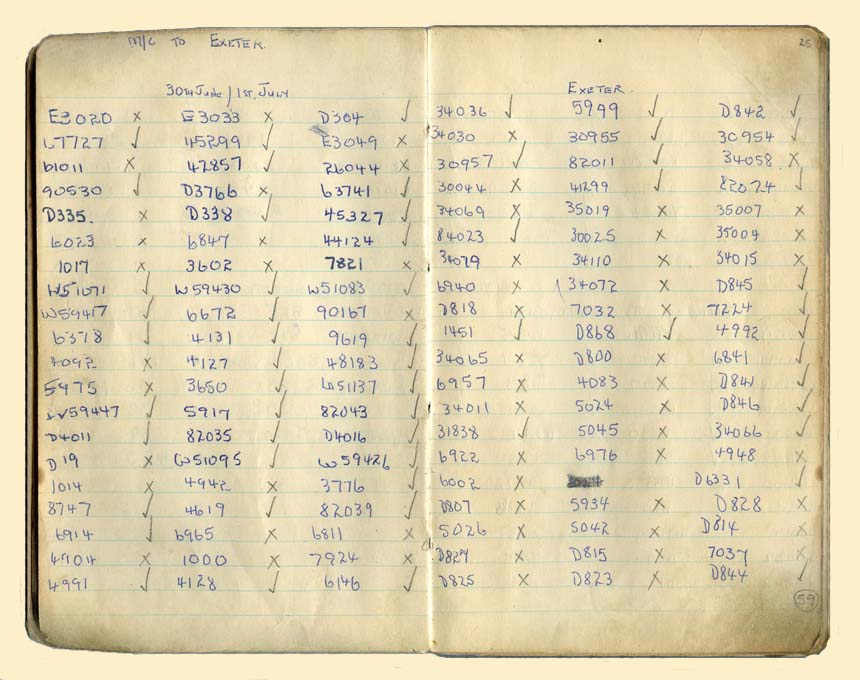 M/C TO EXETER.
30TH JUNE / 1ST JULY
E3020 x E3033 x D304 ✓
L7727 ✓ 45299 ✓ E3049 x
61011 x 42857 ✓ 26044 x
90530 ✓ D3766 x 63741 ✓
D335. x D338 ✓ 45327 ✓
6023 x 6847 x 44124 ✓
1017 x 3602 x 7821 x
W51071 ✓ W59430 ✓ W51083 ✓
W59417 ✓ 6672 ✓ 90167 x
6378 ✓ 4131 ✓ 9619 ✓
4092 x 4127 ✓ 48183 ✓
5975 x 3650 ✓ W51137 ✓
W59447 ✓ 5917 ✓ 82043 ✓
D4011 ✓ 82035 ✓ D4016 ✓
D19 x W51095 ✓ W59426 ✓
1014 x 4942 x 3776 ✓
8747 ✓ 4619 ✓ 82039 ✓
6914 ✓ 6965 x 6811 x
4904 x 1000 x 7924 x
4991 ✓ 4128 ✓ 6146 ✓
25
EXETER.
34036 ✓ 5999 ✓ D842 ✓
34030 x 30955 ✓ 30954 ✓
30957 ✓ 82011 ✓ 34058 x
30044 x 41299 ✓ 82024 ✓
34069 x 35019 x 35007 x
84023 ✓ 30025 x 35004 x
34079 x 34110 x 34015 x
6940 x 34072 x D845 ✓
D818 x 7032 x 7224 ✓
1451 ✓ D868 ✓ 4992 ✓
34065 x D800 x 6841 ✓
6957 x 4083 x D841 ✓
34011 x 5024 x D846 ✓
31838 ✓ 5045 x 34066 ✓
6922 x 6976 x 4948 x
6002 x D6331 ✓
D807 x 5934 x D828 x
5026 x 5042 x D814 x
D827 x D815 x 7037 x
D825 x D823 x D844 ✓
59